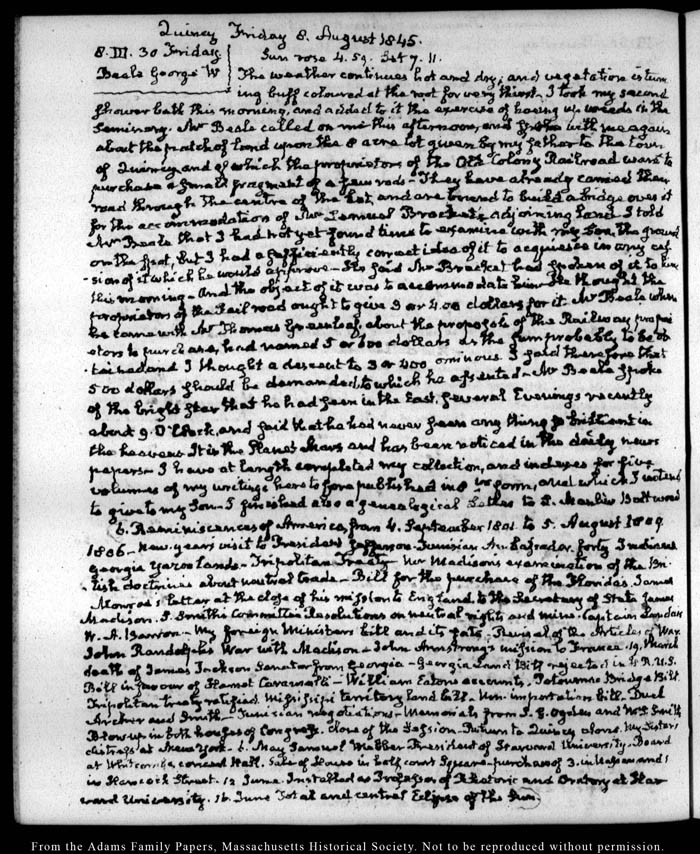 Quincy Friday 8. August 1845.
8. III. 30 Friday Sun rose 4. 59. Set 7. 11.
Beale George W The weather continues hot and dry; and vegetation is turn
ing buff coloured at the root for very thirst. I took my second
shower bath this morning, and added to it the exercise of hoeing up weeds in the
Seminary. Mr Beale called on me this afternoon, and spoke with me again
about the patch of land upon the 8 acre lot given by my father to the town
of Quincy and of which the proprietors of the Old Colony Railroad want to
purchase a small fragment of a few rods. They have already carried their
road through the centre of the Lot, and are bound to build a bridge over it
for the accommodation of Mr Lemuel Brackett's adjoining land I told
Mr Beale that I had not yet found time to examine with my Son the ground
on the spot, but I had a sufficiently correct idea of it to acquiesce in any ces
sion of it which he would approve. He said Mr Bracket had spoken of it to him
this morning. And the object of it was to accommodate him. He thought the
proprietors of the Railroad ought to give 3 or 400 dollars for it. Mr Beale when
he came with Mr Thomas Greenleaf, about the proposals of the Railway propri
etors to purchase, had named 5 or 600 dollars as the sum probably to be ob
tained and I thought a descent to 3 or 400 ominous. I said therefore that
500 dollars should be demanded, to which he assented. Mr Beale spoke
of the bright star that he had seen in the East, several Evenings recently
about 9. O'Clock, and said that he had never seen any thing so brilliant in
the heavens. It is the Planet Mars and has been noticed in the daily news
papers. I have at length completed my collection, and indexes for five
volumes of my writings heretofore published in 8vo form, and which I intend
to give to my Son. I finished also a genealogical Letter to L. Manlius Boltwood
6. Reminiscences of America, from 4. September 1801 to 5. August 1809.
1806. New. years visit to President Jefferson. Tunisian Ambassador. forty Indians
Georgia Yazoo Lands. Tripolitan Treaty. Mr Madisons examination of the Bri
tish doctrine about neutral trade. Bill for the purchase of the Floridas. James
Monroe's letter at the close of his mission to England, to the Secretary of State James
Madison. S. Smiths Committee Resolutions on neutral rights and mine. Captain
W. A. Barron. My foreign Ministers bill and its fate. Revisal of the Articles of War.
John Randolphs War with Madison. John Armstrong's mission to France. 19. March
death of James Jackson Senator from Georgia. Georgia Land Bill rejected in H. R. U.S.
Bill in favour of Hamet Caramalli. William Eatons accounts. Potowmac Bridge Bill.
Tripolitan treaty ratified. Mississippi territory land bill. Non. importation bill. Duel
Archer and Smith. Tunisian negotiations. Memorials from S. G. Ogden and W. S. Smith
Blow up in both houses of Congress. Close of the Session. Return to Quincy alone. My Sisters
distress at New York. 6. May Samuel Webber President of Harvard University. Board
at Whitcombs, concert Hall. Sale of House in half court Square. purchase of 3. in Nassau and 1
in Hancock Street. 12 June. Installed as Professor of Rhetoric and Oratory at Har
vard University. 16 June Total and central Eclipse of the Sun.
From the Adams Family Papers, Massachusetts Historical Society. Not to be reproduced without permission.